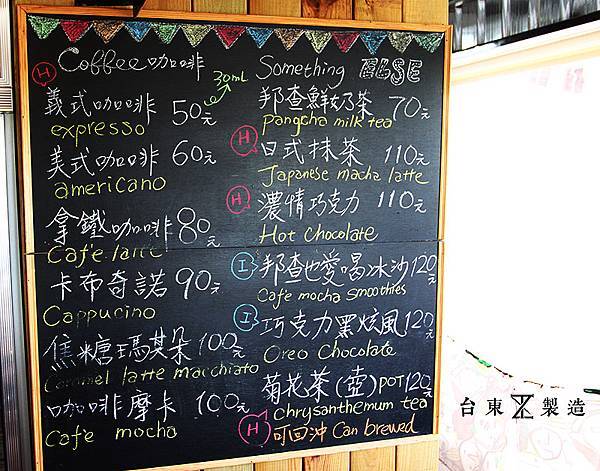 H Coffee 咖啡
30mL
義式咖啡 50元
expresso
美式咖啡 60元
americano
拿鐵咖啡 80元
Caf'e latte
卡布奇諾 90元
Cappucino
焦糖瑪其朵 100元
Caramel latte macchiato
咖啡摩卡 100元
Caf'e mocha
Something ELSE
邦查鮮奶茶 70元
Pangcha milk tea
H 日式抹茶 110元
Japanese macha latte
H 濃情巧克力 110元
Hot Chocolate
I 邦查也愛喝冰沙 120元
Cafe mocha smoothies
I 巧克力黑炫風 120元
Oreo Chocolate
菊花茶(壺)POT 120元
chrysanthemum tea
H 可回沖 Can brewed
台東 製造